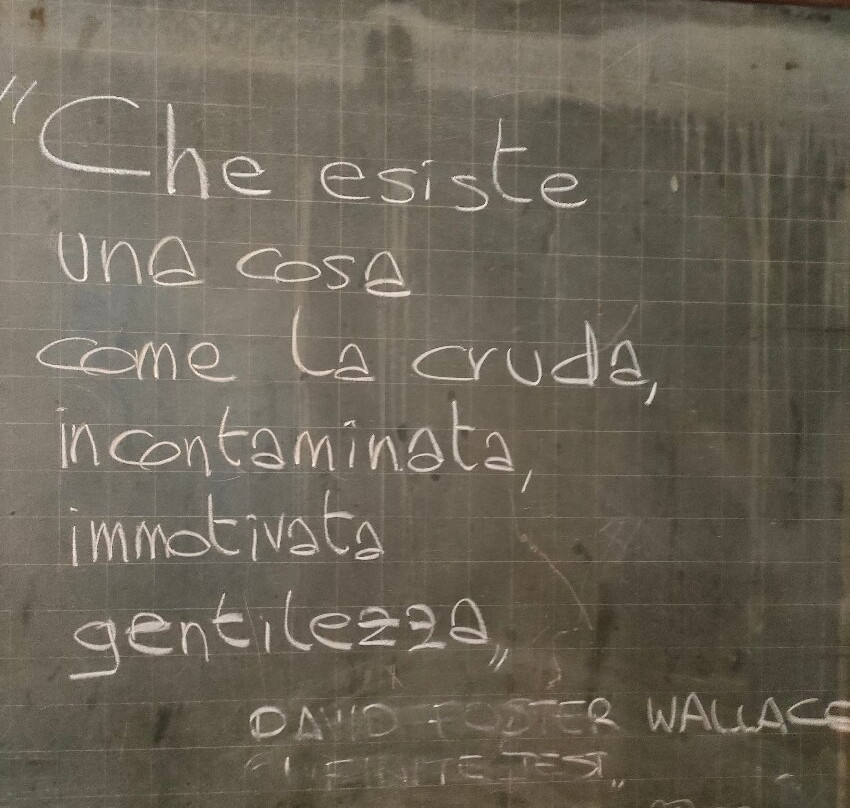 "Che esiste
una cosa
come la cruda,
incontaminata,
immotivata
gentilezza„
DAVID FOSTER WALLACE
"INFINITE JEST„